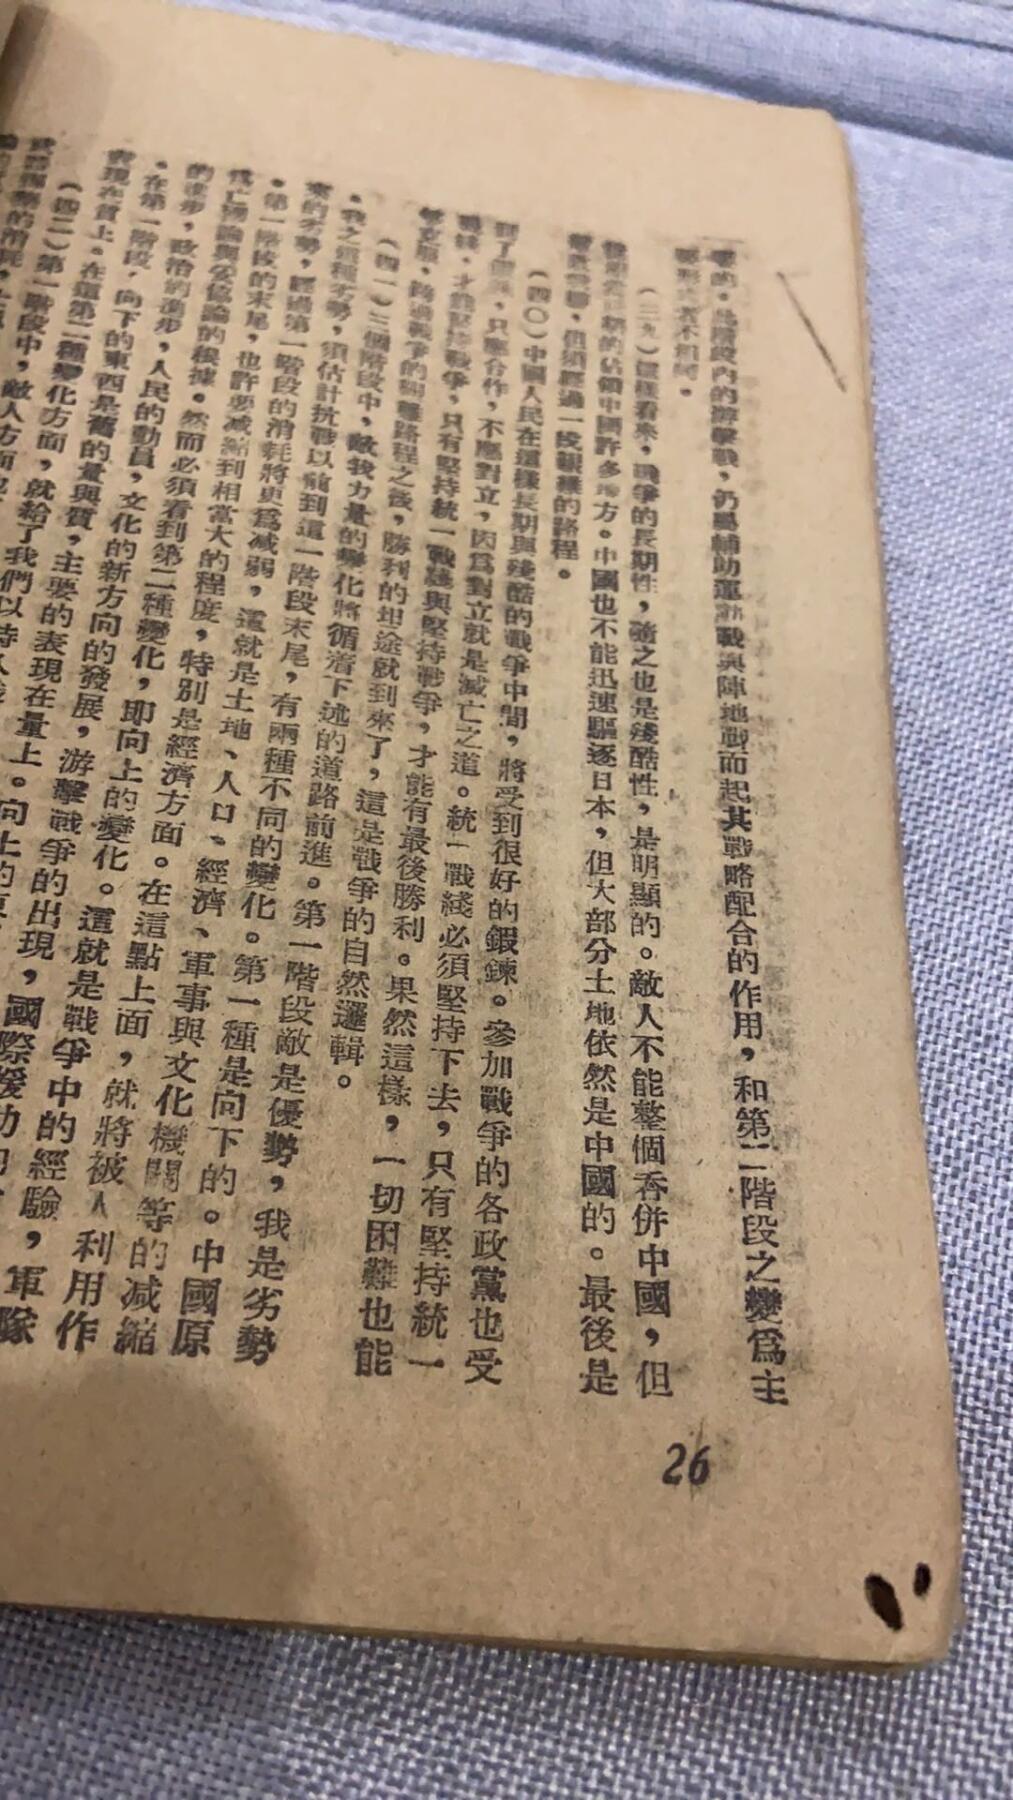 要的。此階段內的游擊戰，仍是輔助運動戰與陣地戰而起其戰略配合的作用，和第二階段之變爲主
要形式者不相同。
（三九）這樣看來，戰爭的長期性，隨之也是殘酷性，是明顯的。敵人不能整個吞併中國，但
的佔領中國許多地方。中國也不能迅速驅逐日本，但大部分土地依然是中國的。最後是
但須經過一段艱難的路程。
（四〇）中國人民在這樣長期與殘酷的戰爭中間，將受到很好的鍛鍊。參加戰爭的各政黨也受
只應合作，不應對立，因爲對立就是滅亡之道。統一戰綫必須堅持下去，只有堅持統一
戰綫，才能堅持戰爭，只有堅持統一戰綫與堅持戰爭，才能有最後勝利。果然這樣，一切困難也能
夠克服，跨過戰爭的艱難路程之後，勝利的坦途就到來了，這是戰爭的自然邏輯。
（四一）三個階段中，敵我力量的變化將循着下述的道路前進。第一階段敵是優勢，我是劣勢
。我之這種劣勢，須估計抗戰以前到這一階段末尾，有兩種不同的變化。第一種是向下的。中國原
來的劣勢，經過第一階段的消耗將更爲減弱，這就是土地、人口、經濟、軍事與文化機關等的減縮
。第一階段的末尾，也許要減縮到相當大的程度，特別是經濟方面。在這點上面，就將被人利用作
爲亡國論與妥協論的根據。然而必須看到第二種變化，即向上的變化。這就是戰爭中的經驗，軍隊
的進步，政治的進步，人民的動員，文化的新方向的發展，游擊戰爭的出現，國際援助的
。在第一階段，向下的東西是舊的量與質，主要的表現在量上。向上的
表現在質上。在這第二種變化方面，就給了我們以持久
（四二）第一階段中，敵人方面
的消耗，
26